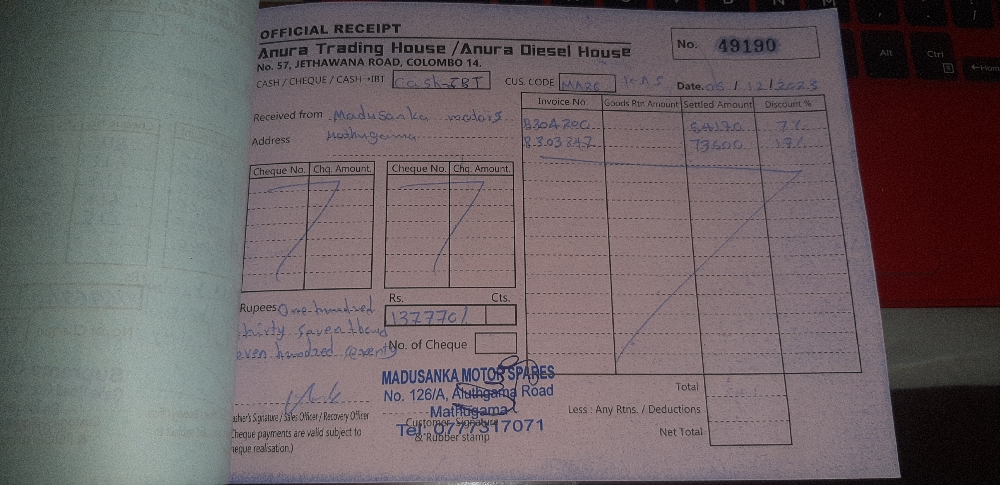 OFFICIAL RECEIPT
Anura Trading House / Anura Diesel House
No. 57, JETHAWANA ROAD, COLOMBO 14.
No. 49190
CASH / CHEQUE / CASH-IBT Cash-IBT
CUS. CODE
Date. 05 / 12 / 2023
Received from Madusanka motors
Address Mathugama
Invoice No. Goods Rtn Amount Settled Amount Discount %
7%
8303847 73600 17%
Cheque No. Chq. Amount. Cheque No. Chq. Amount.
Rupees One hundred
thirty seven thoud
even hundred seventy
Rs. Cts.
137770/
No. of Cheque
MADUSANKA MOTOR SPARES
No. 126/A, Aluthgama Road
Mathugama
Tel: 0777317071
Customer Signature
& Rubber stamp
asher's Signature / Sales Officer / Recovery Officer
heque payments are valid subject to
heque realisation.)
Total
Less : Any Rtns. / Deductions
Net Total
Alt
Ctrl